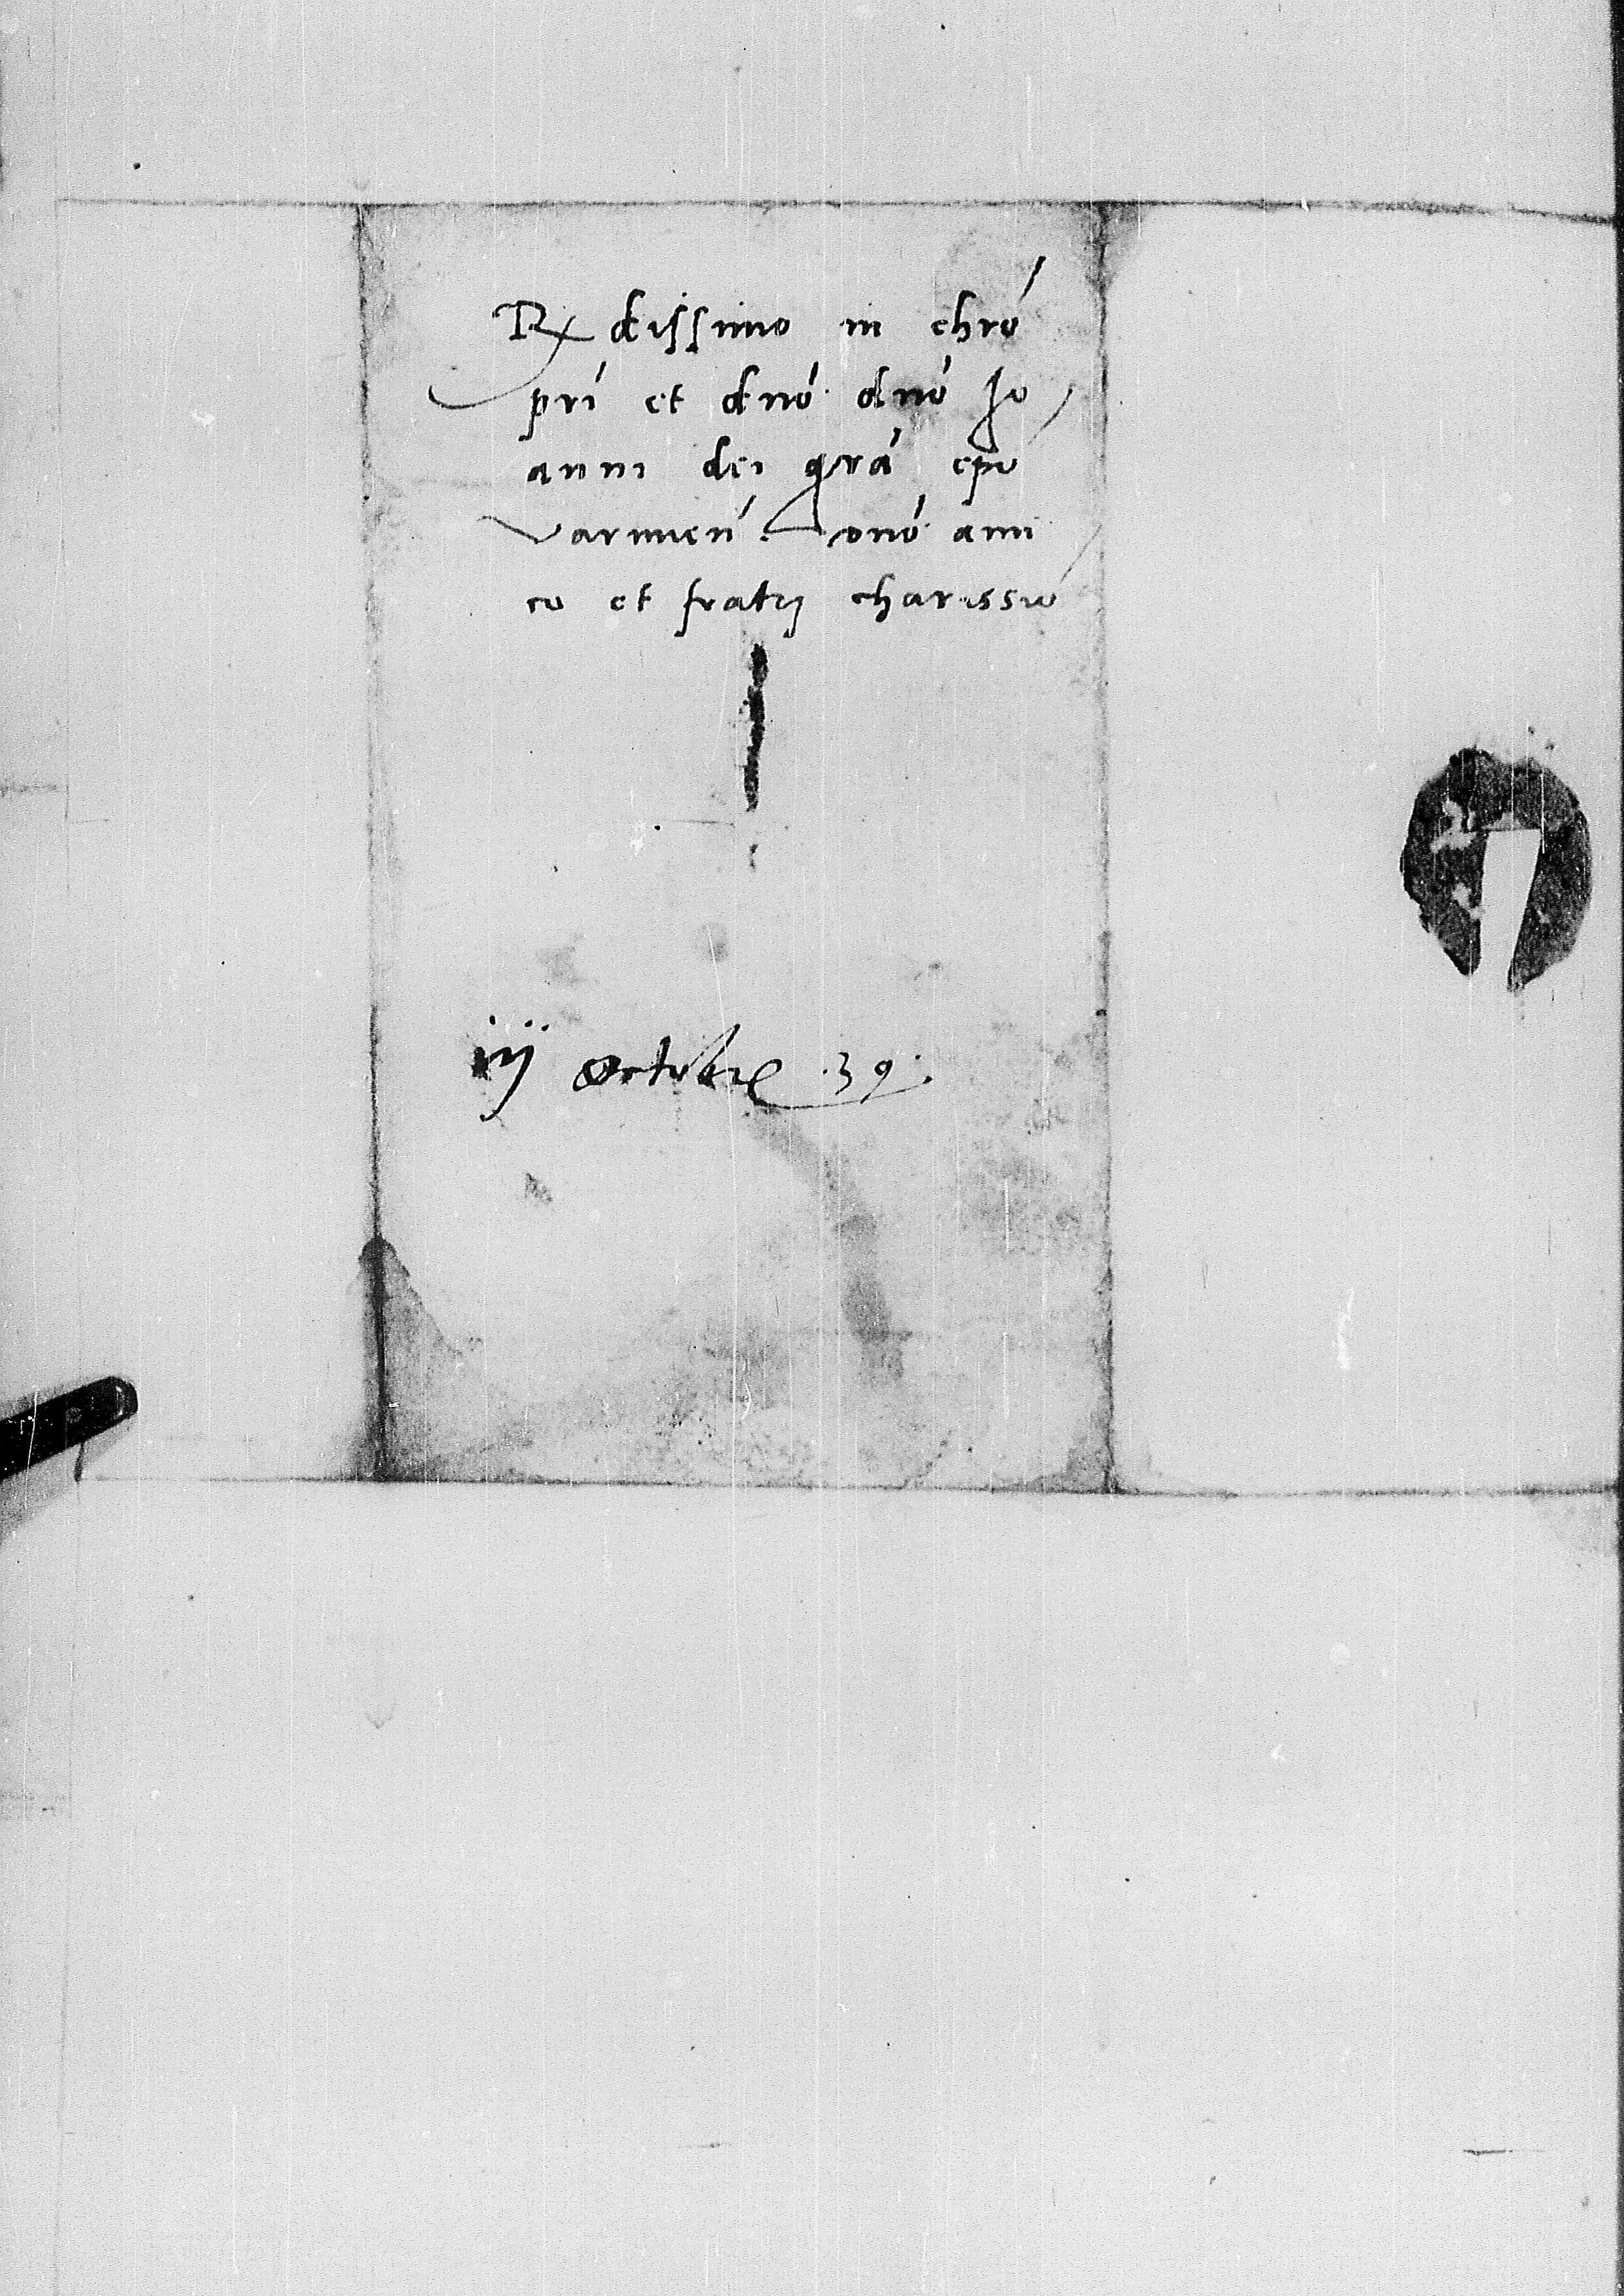 Rx dissimo in chro
pri et dno dno Jo
anni dei gra epo
varmien. dno ami
co et fratri charissio
iij Octobris .39.